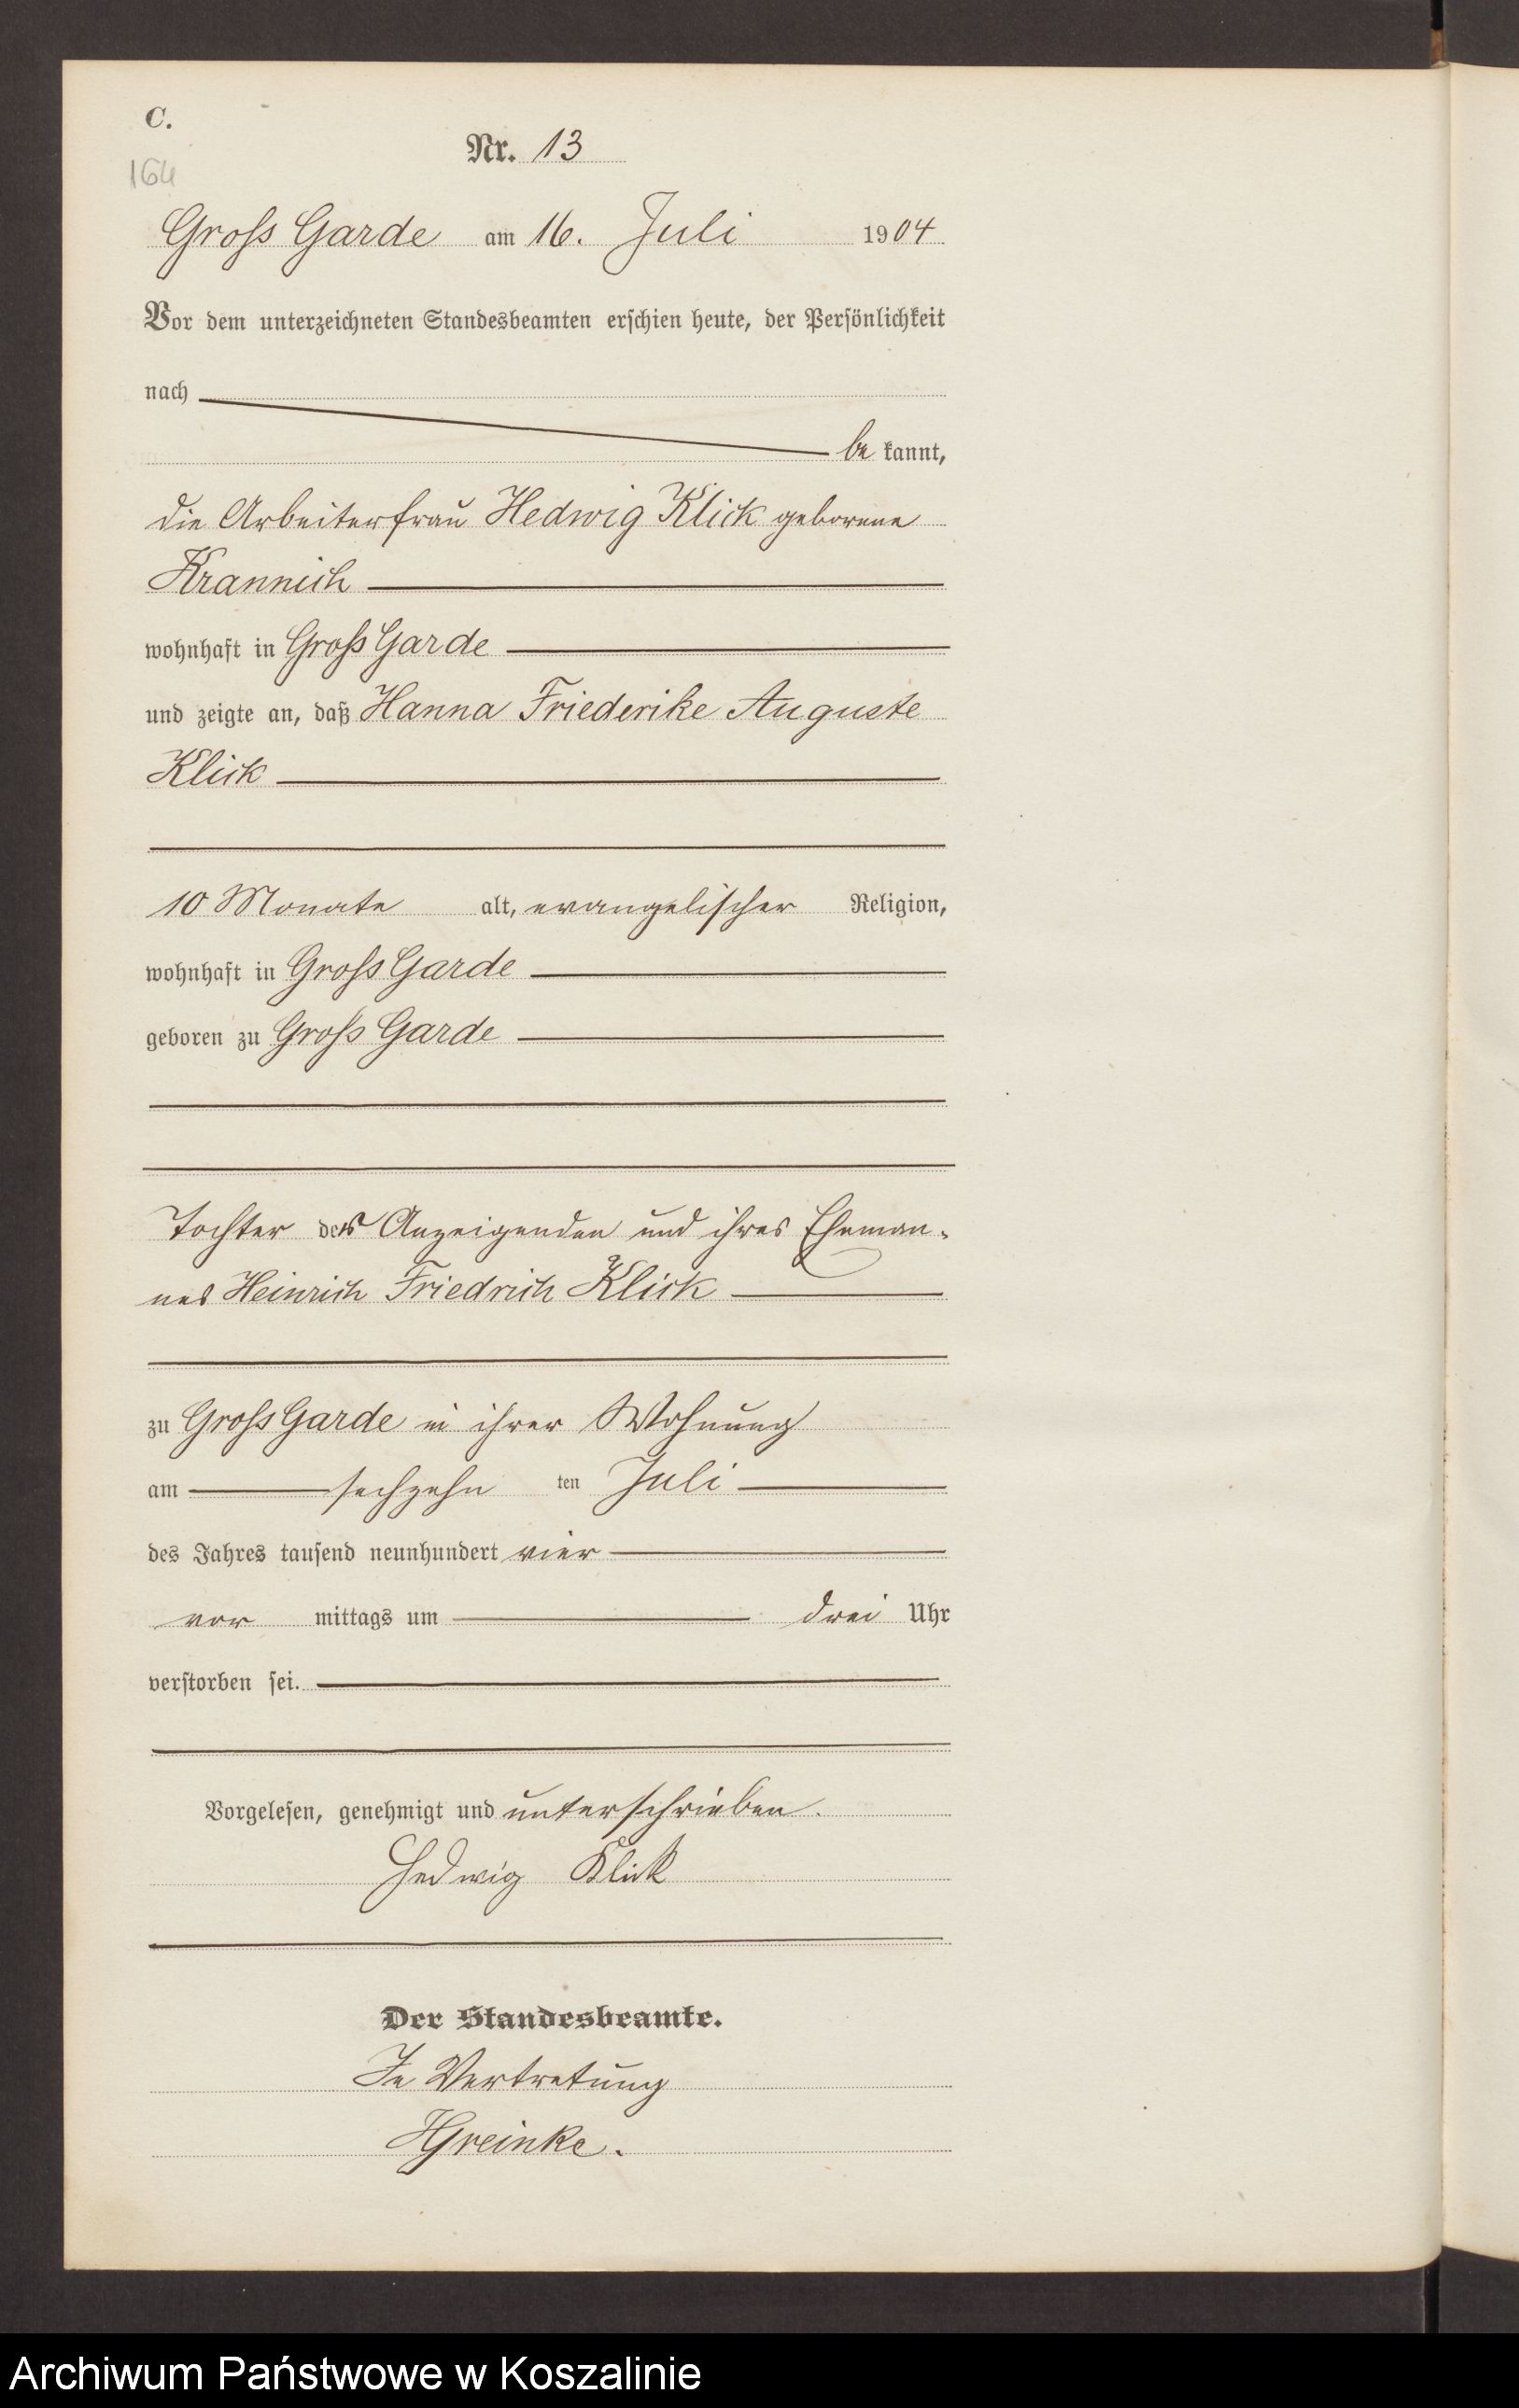 C.
Nr. 13
164
Gross Garde am 16. Juli 1904
Vor dem unterzeichneten Standesbeamten erschien heute, der Persönlichkeit
nach
be kannt,
die Arbeiterfrau Hedwig Klick geborene
Krannich
wohnhaft in Gross Garde
und zeigte an, daß Hanna Friederike Auguste
Klick
10 Monate alt, evangelischer Religion,
wohnhaft in Gross Garde
geboren zu Gross Garde
Tochter der Anzeigenden und ihres Eheman-
nes Heinrich Friedrich Klick
zu Gross Garde in ihrer Wohnung
am sechzehn ten Juli
des Jahres tausend neunhundert vier
vor mittags um drei Uhr
verstorben sei.
Vorgelesen, genehmigt und unterschrieben.
Hedwig Klick
Der Standesbeamte.
In Vertretung
HGreinke.
Archiwum Państwowe w Koszalinie